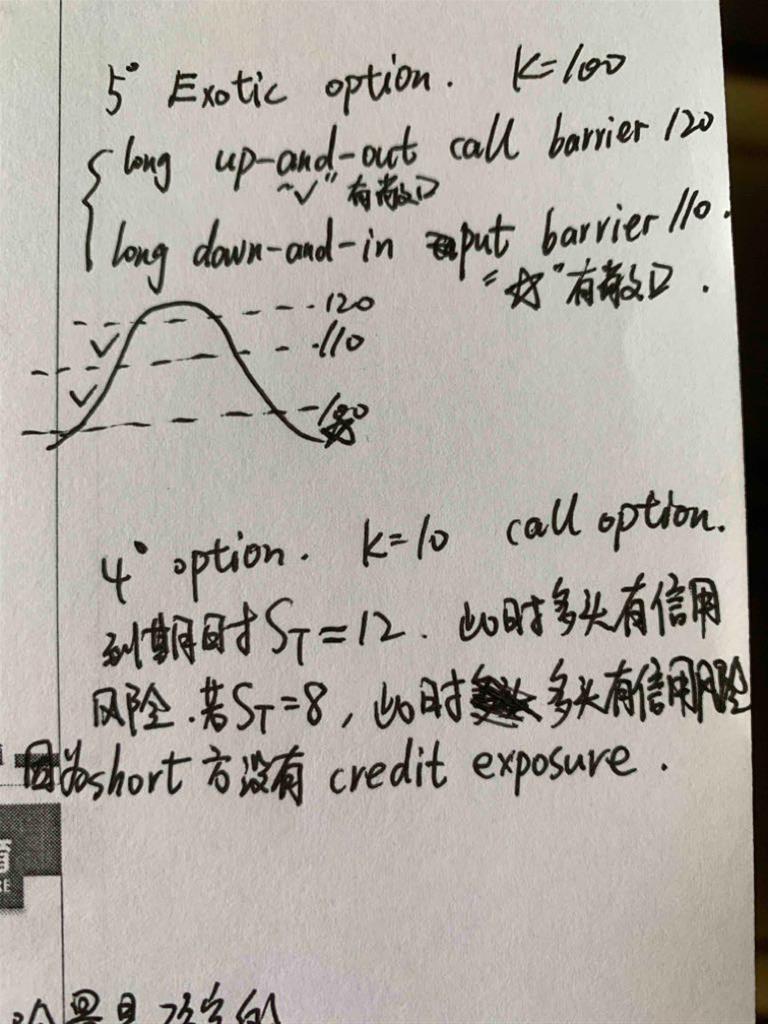 5° Exotic option. K=100
long up-and-out call barrier 120
"✓" 有敞口
long down-and-in put barrier 110.
"好" 有敞口.
120
110
100
4° option. K=10 call option.
到期时 S_T=12. 此时多头有信用
风险.若S_T=8,此时多头有信用风险
因为short方没有 credit exposure.